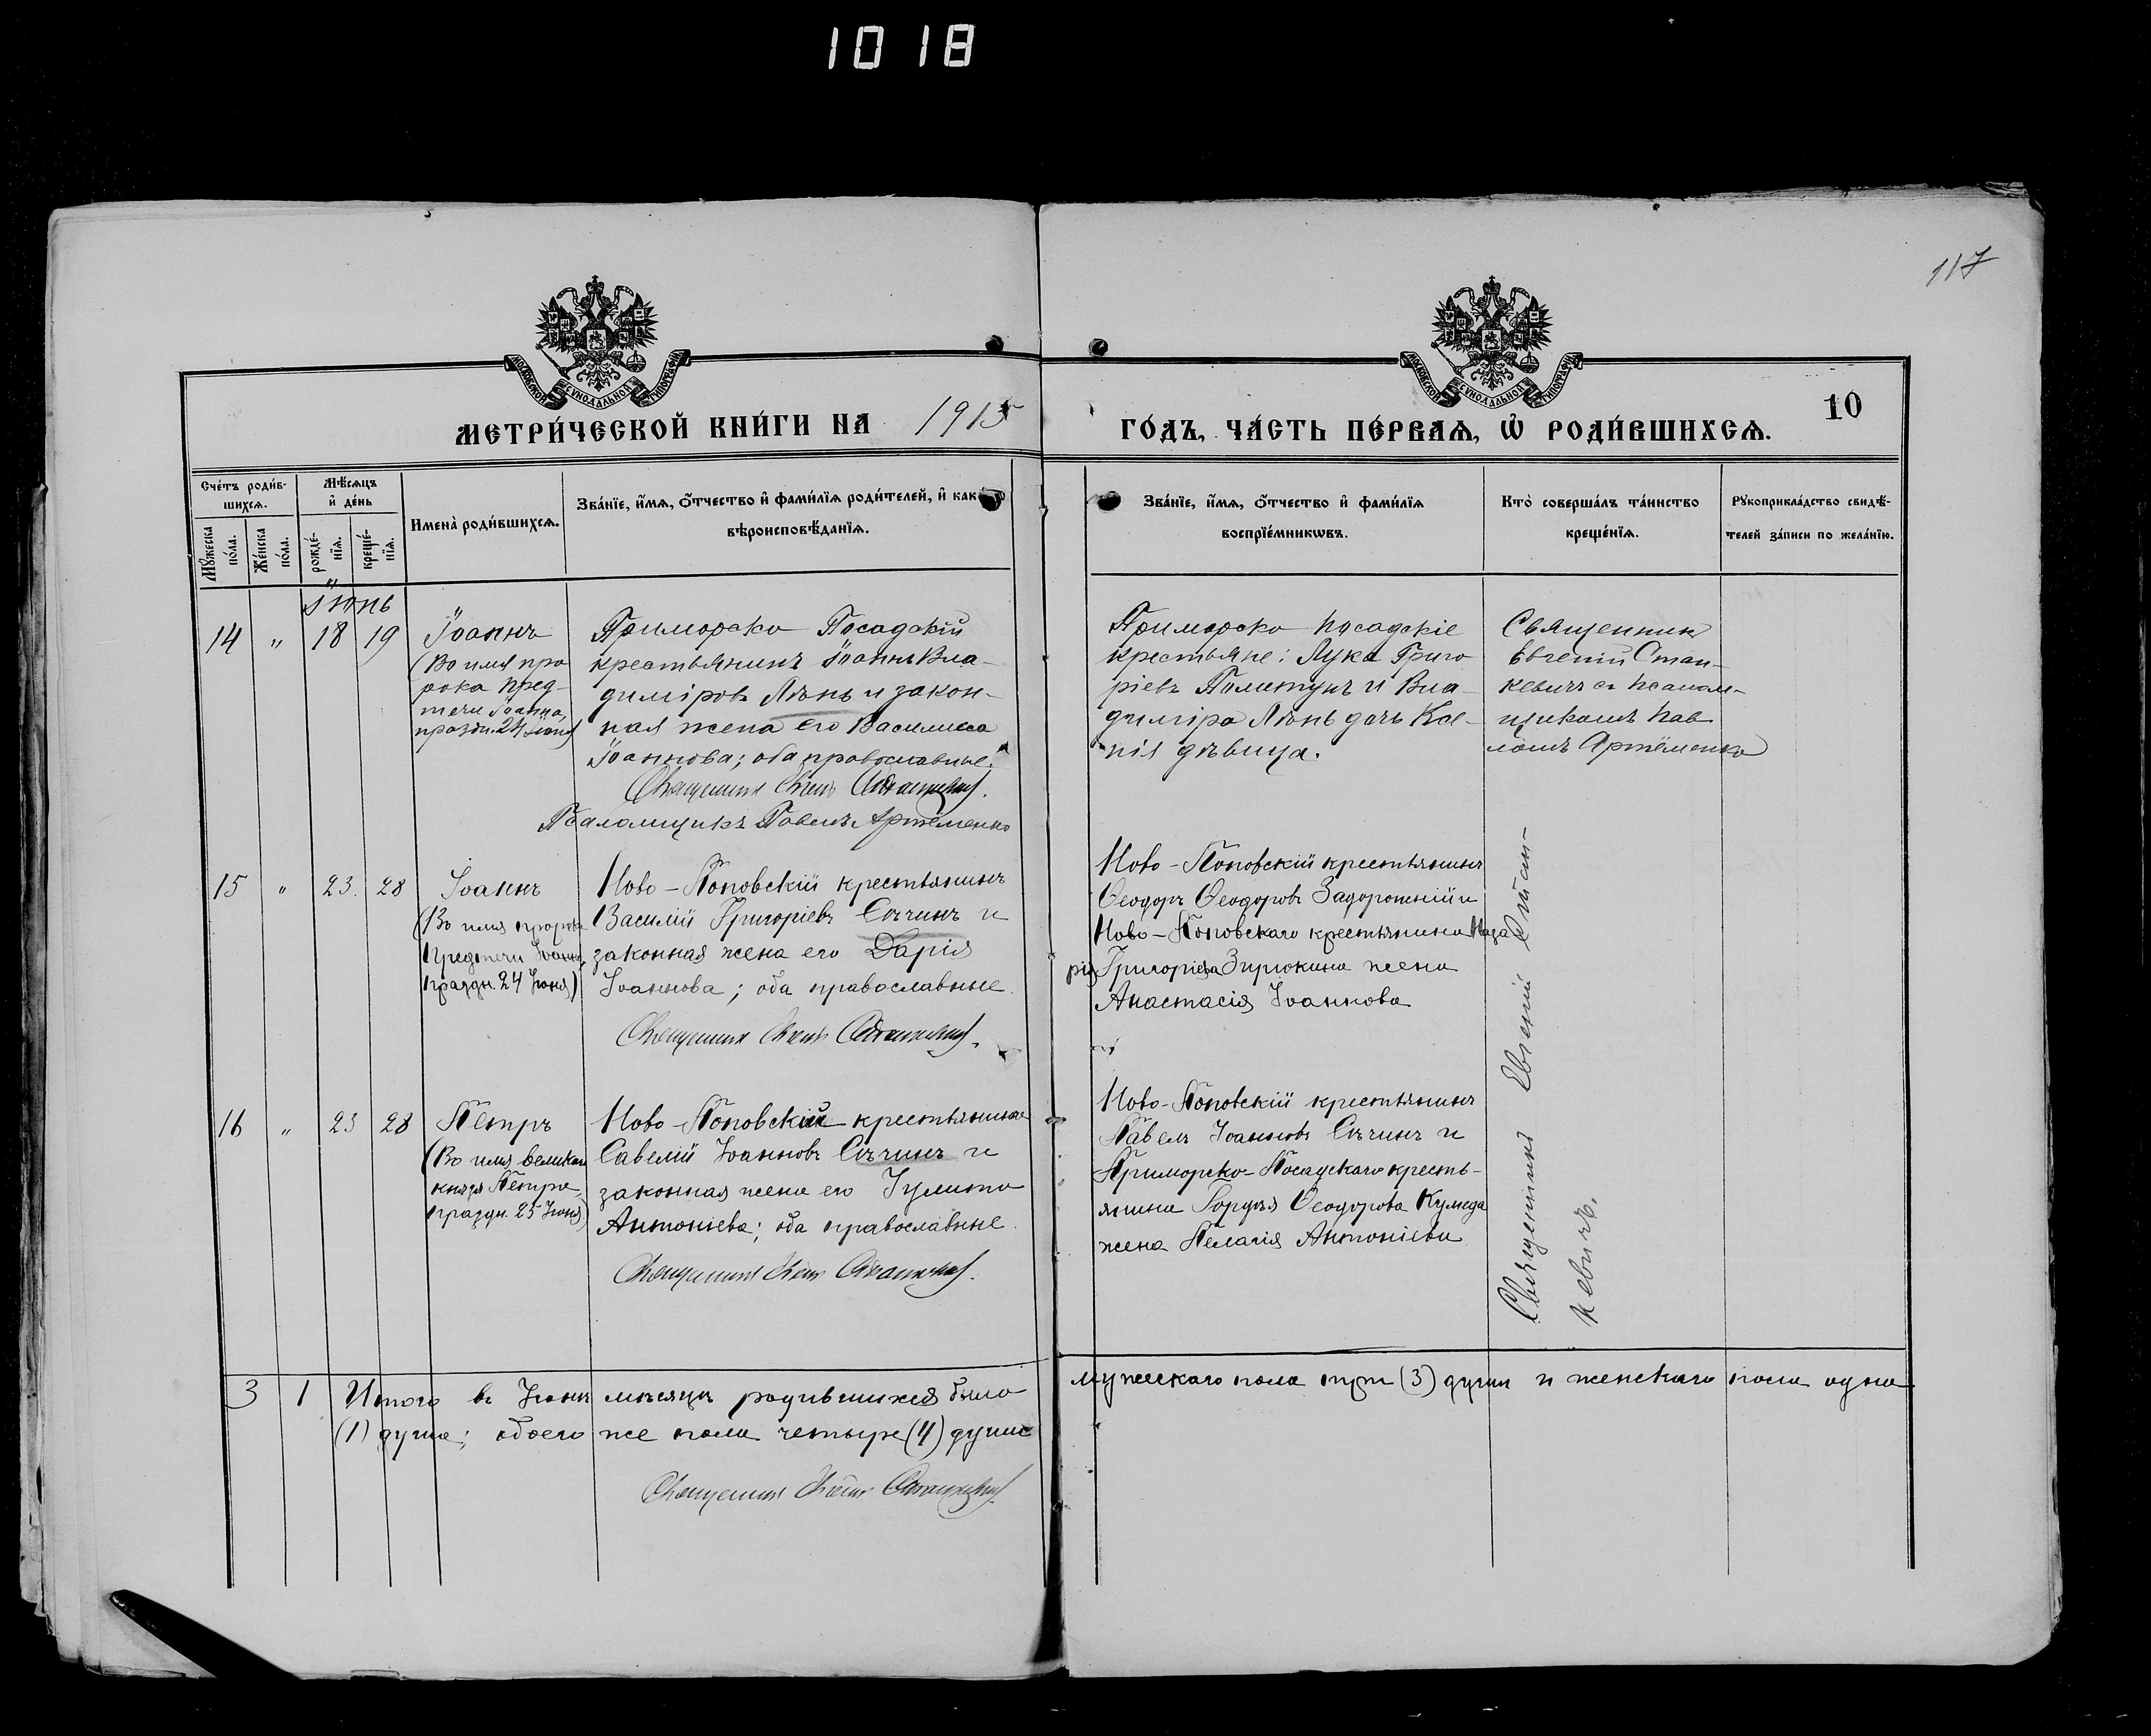 1018
117
МОСКОВСКОЙ СѴНОДАЛЬНОЙ ТИПОГРАФІИ
МОСКОВСКОЙ СѴНОДАЛЬНОЙ ТИПОГРАФІИ
МЕТРИ́ЧЕСКОЙ КНИ́ГИ НА 1915
ГО́ДЪ, ЧА́СТЬ ПЕ́РВАѦ, Ѽ РОДИ́ВШИХСѦ.
10
Сче́тъ роди́в-
шихсѧ.
Мꙋ́жеска
по́ла.
Же́нска
по́ла.
Мѣ́сѧцъ
и҆ де́нь
рожде́-
нїѧ.
креще́-
нїѧ.
И҆мена̀ роди́вшихсѧ.
Зва́нїе, и҆́мѧ, ѻ҆́тчество и҆ фами́лїѧ роди́телей, и҆ како́гѡ
вѣроисповѣ́данїѧ.
Зва́нїе, и҆́мѧ, ѻ҆́тчество и҆ фами́лїѧ
воспрїе́мникѡвъ.
Кто̀ соверша́лъ та́инство
креще́нїѧ.
Рꙋкоприкла́дство свидѣ́-
телей за́писи по жела́нїю.
Іюнь
14 " 18 19
Іоаннъ
(Во имя про
рока Пред-
течи Іоанна,
праздн. 24 Іюня)
Приморско Посадскій
крестьянинъ Іоаннъ Вла-
диміровъ Лѣнь и закон-
ная жена его Василиса
Іоаннова; оба православные.
Священникъ Евгеній Станкевичъ.
Псаломщикъ Павелъ Артёменко
Приморско Посадскіе
крестьяне: Лука Григо
ріевъ Политунъ и Вла-
диміра Лѣнь дочь Ксе-
нія дѣвица.
Священник
Евгеній Стан-
кевичъ съ псалом-
щикомъ Пав
ломъ Артёменко
15 " 23. 28
Іоаннъ
(Во имя пророка
Предтечи Іоанна,
праздн. 24 Іюня)
Ново-Поповскій крестьянинъ
Василій Григоріевъ Сѣчинъ и
законная жена его Дарія
Іоаннова; оба православные.
Священникъ Евгеній Станкевичъ.
Ново-Поповскій крестьянинъ
Ѳеодоръ Ѳеодоровъ Задорожній и
Ново-Поповскаго крестьянина Наза
рія Григоріева Зирюкина жена
Анастасія Іоаннова
16 " 23 28
Петръ
(Во имя великаго
князя Петра,
праздн. 25 Іюня)
Ново-Поповскій крестьянинъ
Савелій Іоанновъ Сѣчинъ и
законная жена его Іулита
Антоніева; оба православные.
Священникъ Евгеній Станкевичъ.
Ново-Поповскій крестьянинъ
Павелъ Іоанновъ Сѣчинъ и
Приморско-Посадскаго кресть-
янина Гордѣя Ѳеодорова Кумеда
жена Пелагія Антоніева
Священникъ Евгеній Стан-
кевичъ.
3 1 Итого въ Іюнѣ мѣсяцѣ родившихся было мужескаго пола три (3) души и женскаго пола одна
(1) душа; обоего же пола четыре (4) души
Священникъ Евгеній Станкевичъ.